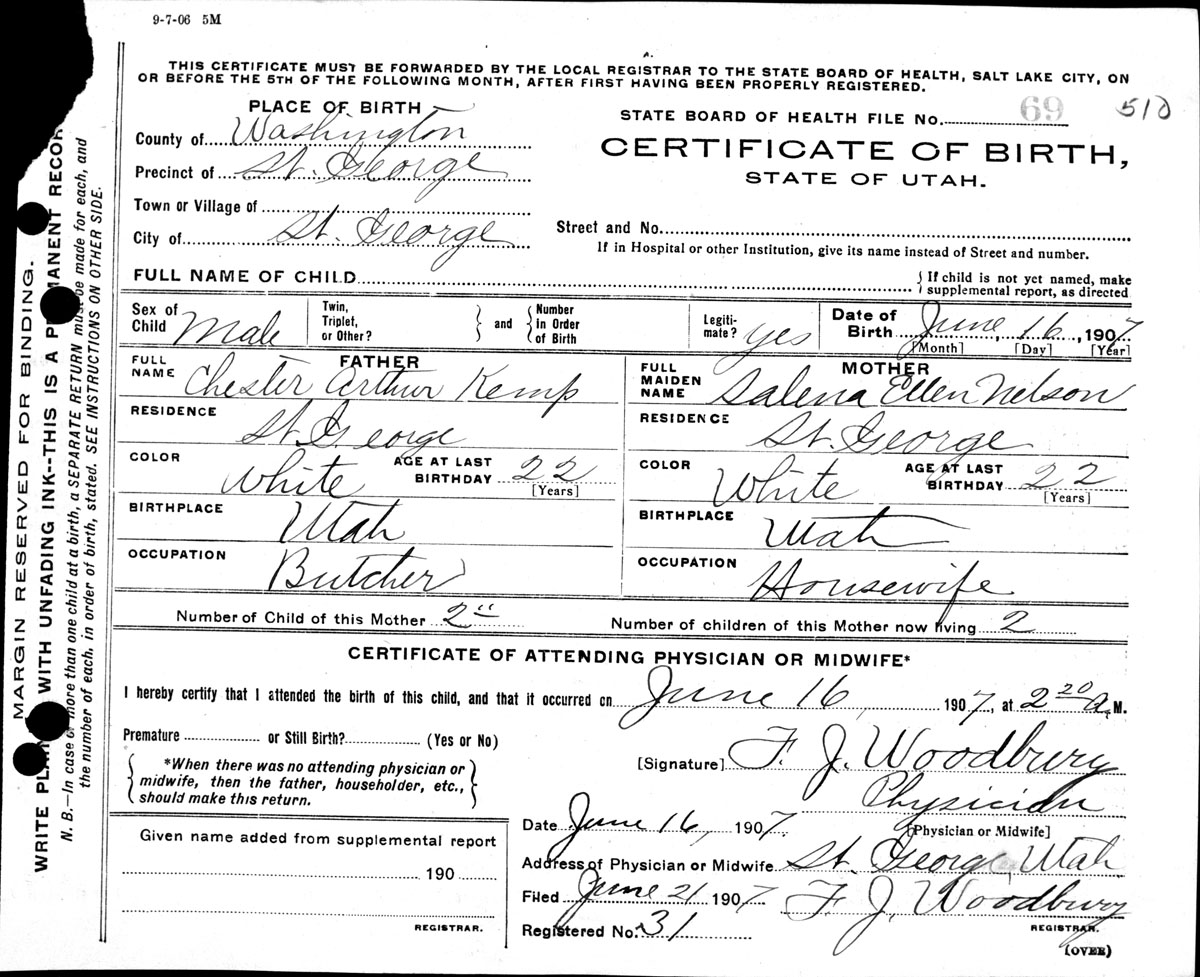 9-7-06 5M
THIS CERTIFICATE MUST BE FORWARDED BY THE LOCAL REGISTRAR TO THE STATE BOARD OF HEALTH, SALT LAKE CITY, ON
OR BEFORE THE 5TH OF THE FOLLOWING MONTH, AFTER FIRST HAVING BEEN PROPERLY REGISTERED.
PLACE OF BIRTH
STATE BOARD OF HEALTH FILE No. 69 510
County of Washington
CERTIFICATE OF BIRTH,
Precinct of St. George
STATE OF UTAH.
Town or Village of
Street and No.
City of St. George
If in Hospital or other Institution, give its name instead of Street and number.
FULL NAME OF CHILD
{ If child is not yet named, make
supplemental report, as directed
Sex of Child Male Twin, Triplet, or Other? } and { Number in Order of Birth Legiti-mate? yes Date of Birth June 16, 1907
[Month] [Day] [Year]
FATHER
FULL NAME Chester Arthur Kemp
RESIDENCE St. George
COLOR White AGE AT LAST BIRTHDAY 22
[Years]
BIRTHPLACE Utah
OCCUPATION Butcher
MOTHER
FULL MAIDEN NAME Salena Ellen Nelson
RESIDENCE St. George
COLOR White AGE AT LAST BIRTHDAY 22
[Years]
BIRTHPLACE Utah
OCCUPATION Housewife
Number of Child of this Mother 2" Number of children of this Mother now living 2
CERTIFICATE OF ATTENDING PHYSICIAN OR MIDWIFE*
I hereby certify that I attended the birth of this child, and that it occurred on June 16, 1907, at 2 20 a. M.
Premature or Still Birth? (Yes or No)
*When there was no attending physician or
midwife, then the father, householder, etc.,
should make this return.
[Signature] F. J. Woodbury
Physician
[Physician or Midwife]
Date June 16, 1907.
Given name added from supplemental report
190
REGISTRAR.
Address of Physician or Midwife St. George, Utah
Filed June 21 1907 F. J. Woodbury
REGISTRAR.
Registered No. 31
(OVER)
MARGIN RESERVED FOR BINDING.
WRITE PLAIN WITH UNFADING INK--THIS IS A PERMANENT RECOR
N. B.—In case of more than one child at a birth, a SEPARATE RETURN must be made for each, and
the number of each, in order of birth, stated. SEE INSTRUCTIONS ON OTHER SIDE.